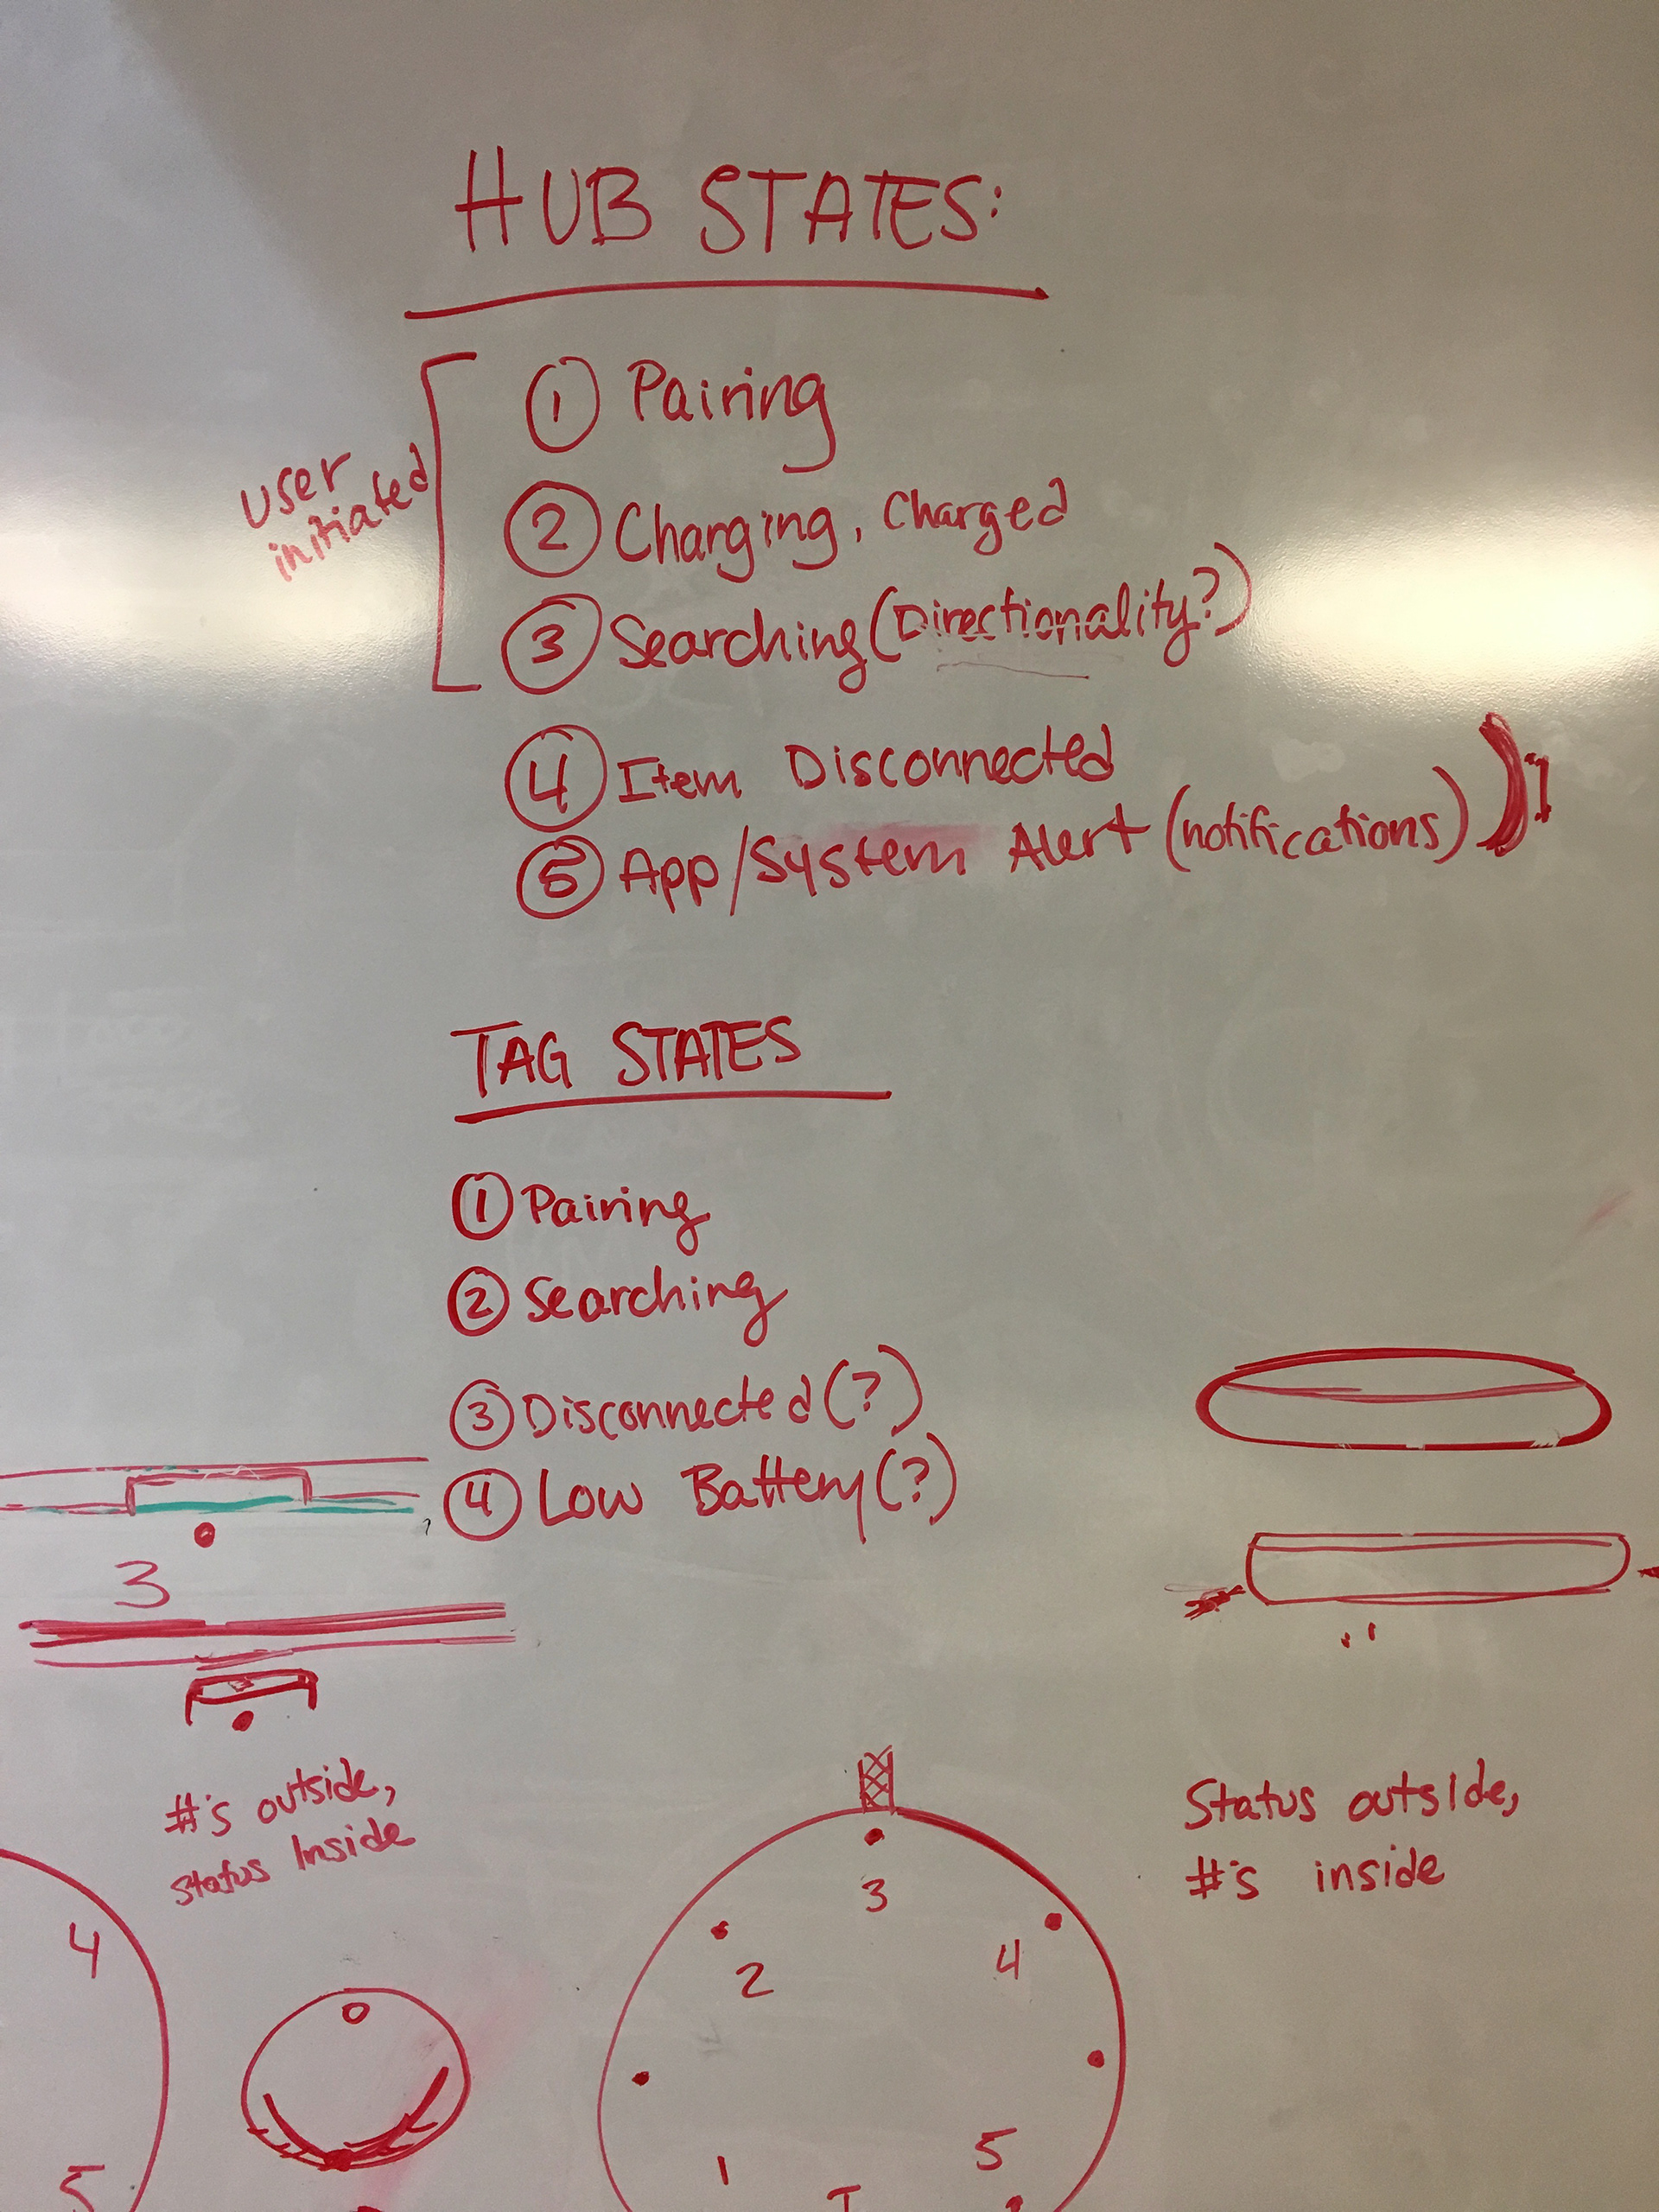 HUB STATES:
user
initiated
1 Pairing
2 Charging, Charged
3 Searching (Directionality?)
4 Item Disconnected
5 App/System Alert (notifications)
TAG STATES
1 Pairing
2 Searching
3 Disconnected (?)
4 Low Battery (?)
3
#'s outside,
status Inside
Status outside,
#'s inside
4
5
3
2
4
1
5